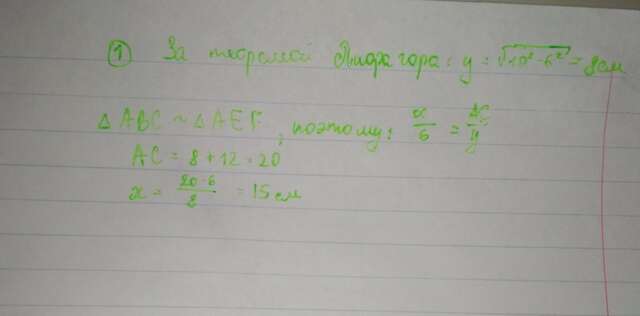 ① За теоремой Пифагора: y = √10² - 6² = 8 см
△ABC ~ △AEF, поэтому: x/6 = AC/y
AC = 8 + 12 = 20
x = 20·6/8 = 15 см